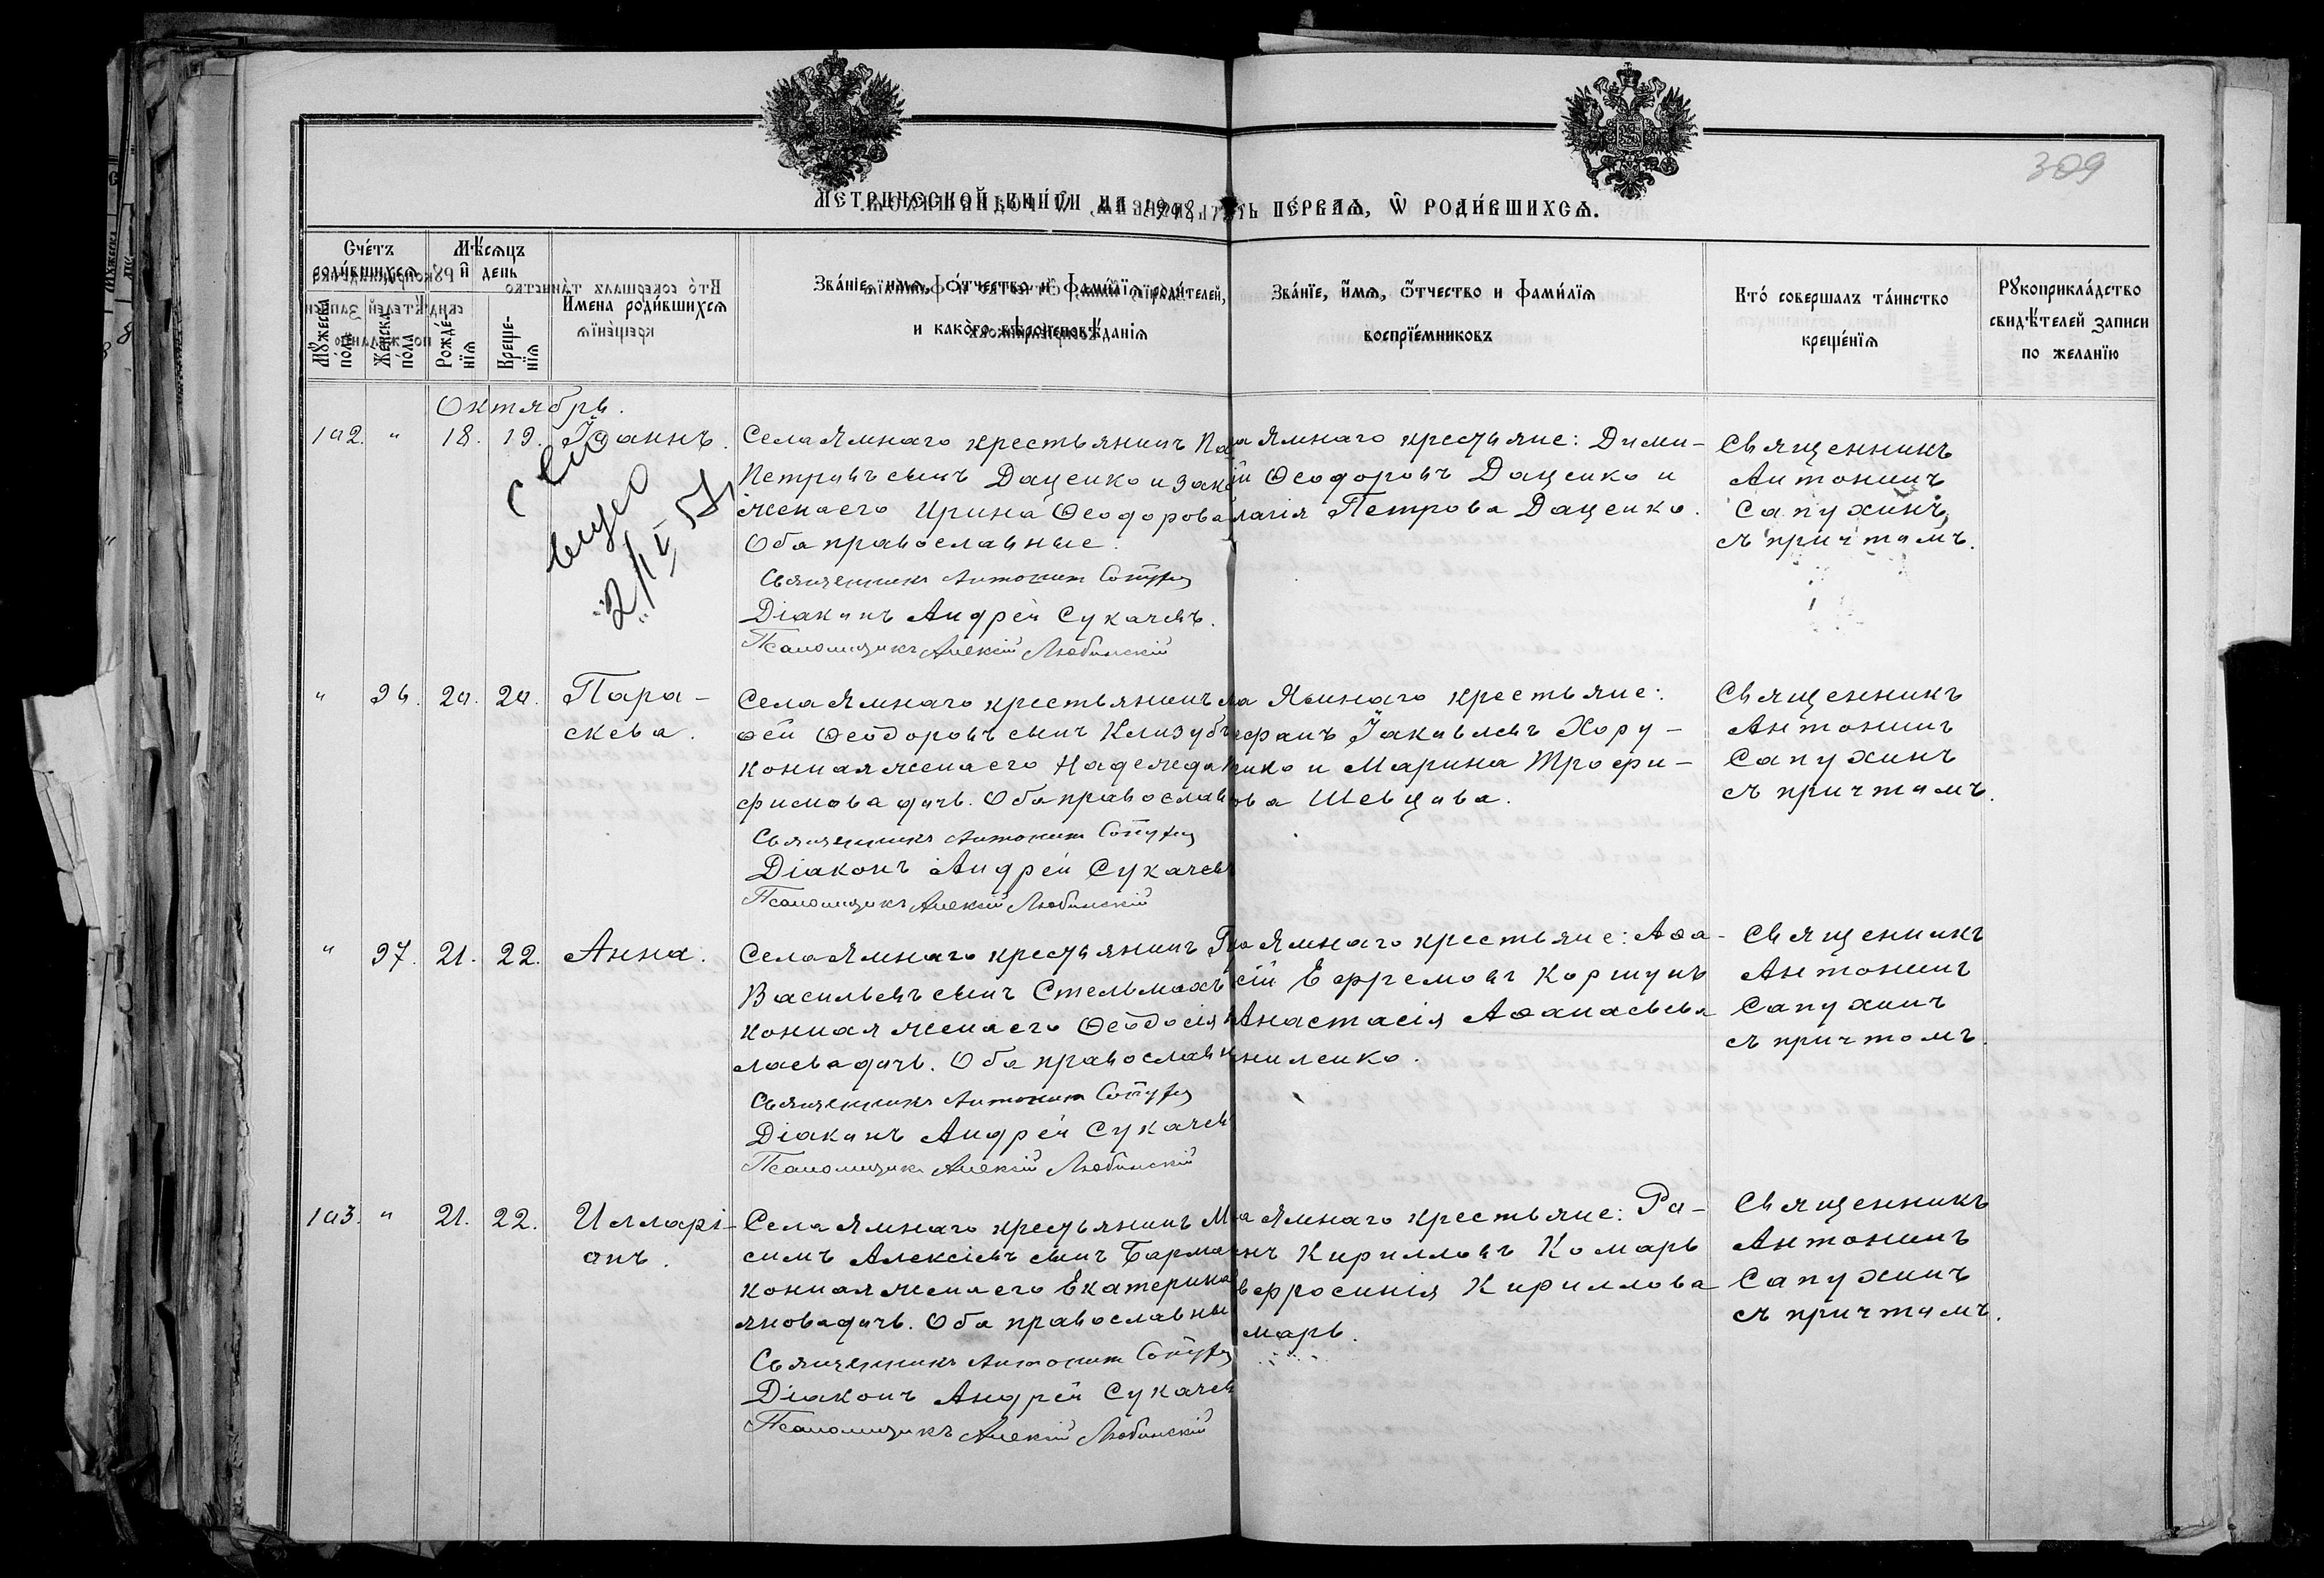 309
МЕТРИЧЕСКОЙ КНИГИ НА 1908
ТЬ ПЕ́РВАѦ, Ѡ РОДИ́ВШИХСѦ.
Сче́тъ роди́вшихсѧ
Мꙋ́жеска по́ла
Же́нска по́ла
Мѣ́сѧцъ и҆ день
Рожде́нїѧ
Креще́нїѧ
И҆мена роди́вшихсѧ
Зва́нїе, и҆мѧ, ѻ҆́тчество и фами́лїѧ роди́телей,
и како́го вѣроисповѣ́данїѧ
Зва́нїе, и҆́мѧ, ѻ҆́тчество и фами́лїѧ
воспрїе́мниковъ
Кто́ соверша́лъ та́инство
креще́нїѧ
Рꙋкоприкла́дство
свидѣ́телей записи
по жела́нїю
Октябрь.
102. " 18. 19. Іоаннъ.
Села Ямнаго крестьянинъ
Петровъ сынъ Даценко и
жена его Ирина Ѳеодорова
Оба православные.
Священникъ Антонин
Діаконъ Андрей Сукачевъ.
Псаломщикъ Алексій Любинскій
Ямнаго крестьяне: Дими-
Ѳеодоровъ Даценко и
Петрова Даценко.
Священникъ
Антонинъ
Сапухинъ,
съ причтомъ.
" 96. 20. 20. Пара-
скева.
Села Ямнаго крестьянинъ
Ѳеодоровъ сынъ
конная жена его Надежда
фимова дочь. Оба православ
Священникъ Антонин
Діаконъ Андрей Сукачев
Псаломщикъ Алексій Любинскій
Ямнаго крестьяне:
Іаковлевъ Хору-
и Марина Трофи-
ова Шевцова.
Священникъ
Антонинъ
Сапухинъ
съ причтомъ.
" 97. 21. 22. Анна.
Села Ямнаго крестьянинъ
Васильевъ сынъ Стельмахъ
конная жена его Ѳеодосія
лаева дочь. Оба православн
Священникъ Антонин
Діаконъ Андрей Сукачев
Псаломщикъ Алексій Любинскій
Ямнаго крестьяне: Аѳа-
сій Ефремовъ Коршунъ
Анастасія Аѳанасьева
ниленко.
Священникъ
Антонинъ
Сапухинъ
съ причтомъ.
103. " 21. 22. Илларі-
онъ.
Села Ямнаго крестьянинъ М
симъ Алексіевъ сынъ
конная жена его Екатерина
янова дочь. Оба православны
Священникъ Антонин
Діаконъ Андрей Сукачев
Псаломщикъ Алексій Любинскій
Ямнаго крестьяне: Ро-
нъ Кирилловъ Комарь
вфросинія Кириллова
марь.
Священникъ
Антонинъ
Сапухинъ
съ причтомъ.